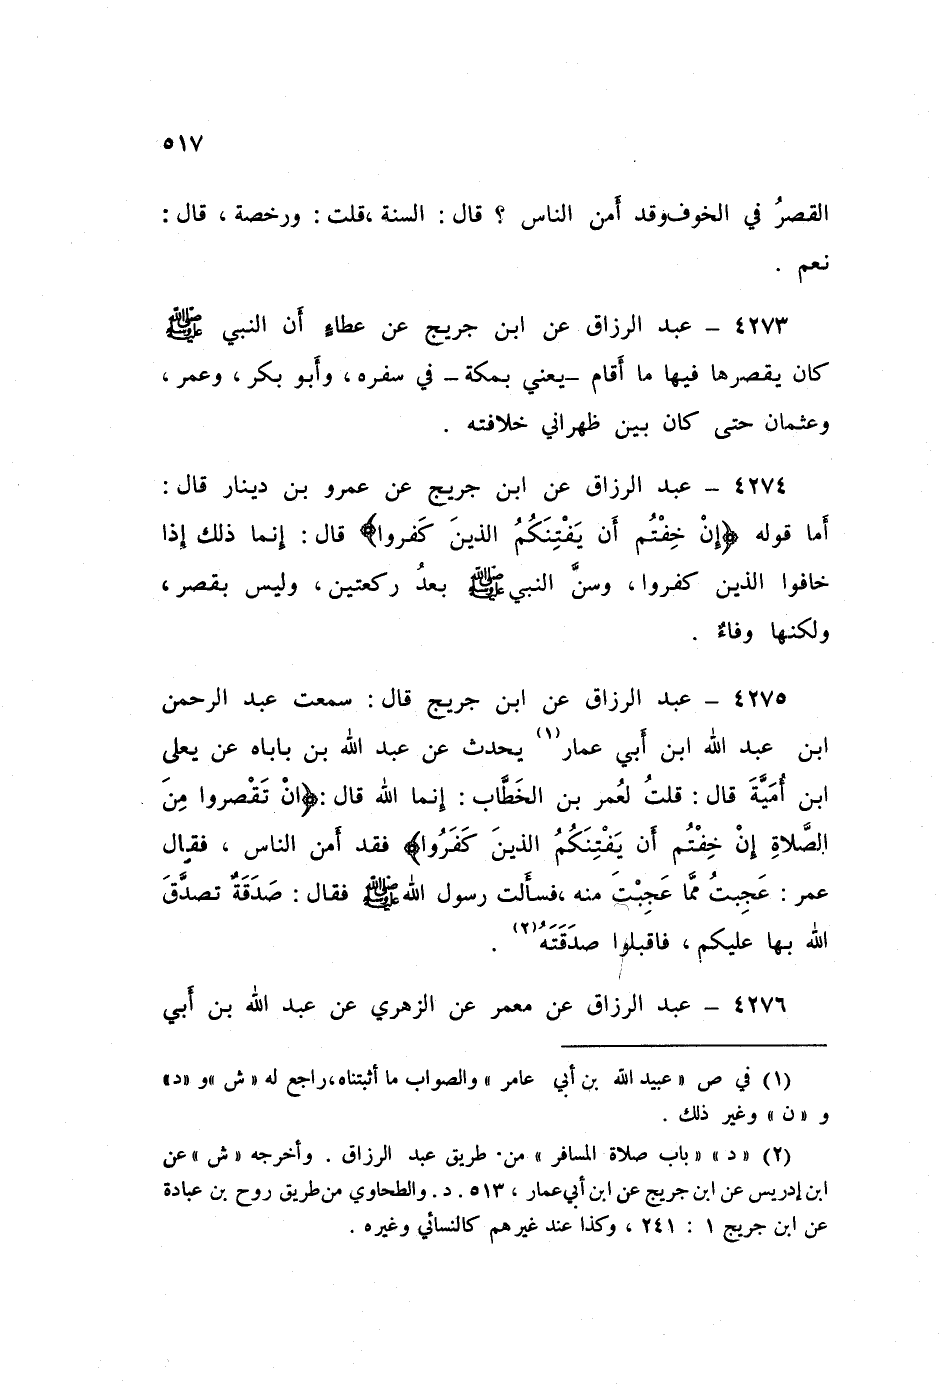 ٥١٧
القصرُ في الخوف وقد أَمن الناس ؟ قال : السنة ، قلت : ورخصة ، قال :
نعم .
٤٢٧٣ – عبد الرزاق عن ابن جريج عن عطاءٍ أَن النبي ﷺ
كان يقصرها فيها ما أَقام –يعني بمكة– في سفره ، وأَبو بكر ، وعمر ،
وعثمان حتى كان بين ظهراني خلافته .
٤٢٧٤ – عبد الرزاق عن ابن جريج عن عمرو بن دينار قال :
أَما قوله ﴿إِنْ خِفْتُم أَن يَفْتِنَكُمُ الذينَ كَفروا﴾ قال : إنما ذلك إذا
خافوا الذين كفروا ، وسنَّ النبي ﷺ بعدُ ركعتين ، وليس بقصر ،
ولكنها وفاءٌ .
٤٢٧٥ – عبد الرزاق عن ابن جريج قال : سمعت عبد الرحمن
ابن عبد الله ابن أَبي عمار(١) يحدث عن عبد الله بن باباه عن يعلى
ابن أُمَيَّةَ قال : قلتُ لعُمر بن الخَطَّاب : إنما الله قال :﴿انْ تَقْصروا مِنَ
الصَّلاةِ إِنْ خِفْتُم أَن يَفْتِنَكُمُ الذينَ كَفَرُوا﴾ فقد أَمن الناس ، فقال
عمر : عَجِبتُ مِمَّا عَجِبْتَ منه ، فسأَلت رسول الله ﷺ فقال : صَدَقَةٌ تصدَّقَ
الله بها عليكم ، فاقبلوا صدَقَتَهُ(٢) .
٤٢٧٦ – عبد الرزاق عن معمر عن الزهري عن عبد الله بن أَبي
(١) في ص « عبيد الله بن أبي عامر » والصواب ما أثبتناه ، راجع له « ش » و « د »
و « ن » وغير ذلك .
(٢) « د » « باب صلاة المسافر » من طريق عبد الرزاق . وأخرجه « ش » عن
ابن إدريس عن ابن جريج عن ابن أبي عمار ، ٥١٣ . د . والطحاوي من طريق روح بن عبادة
عن ابن جريج ١ : ٢٤١ ، وكذا عند غيرهم كالنسائي وغيره .